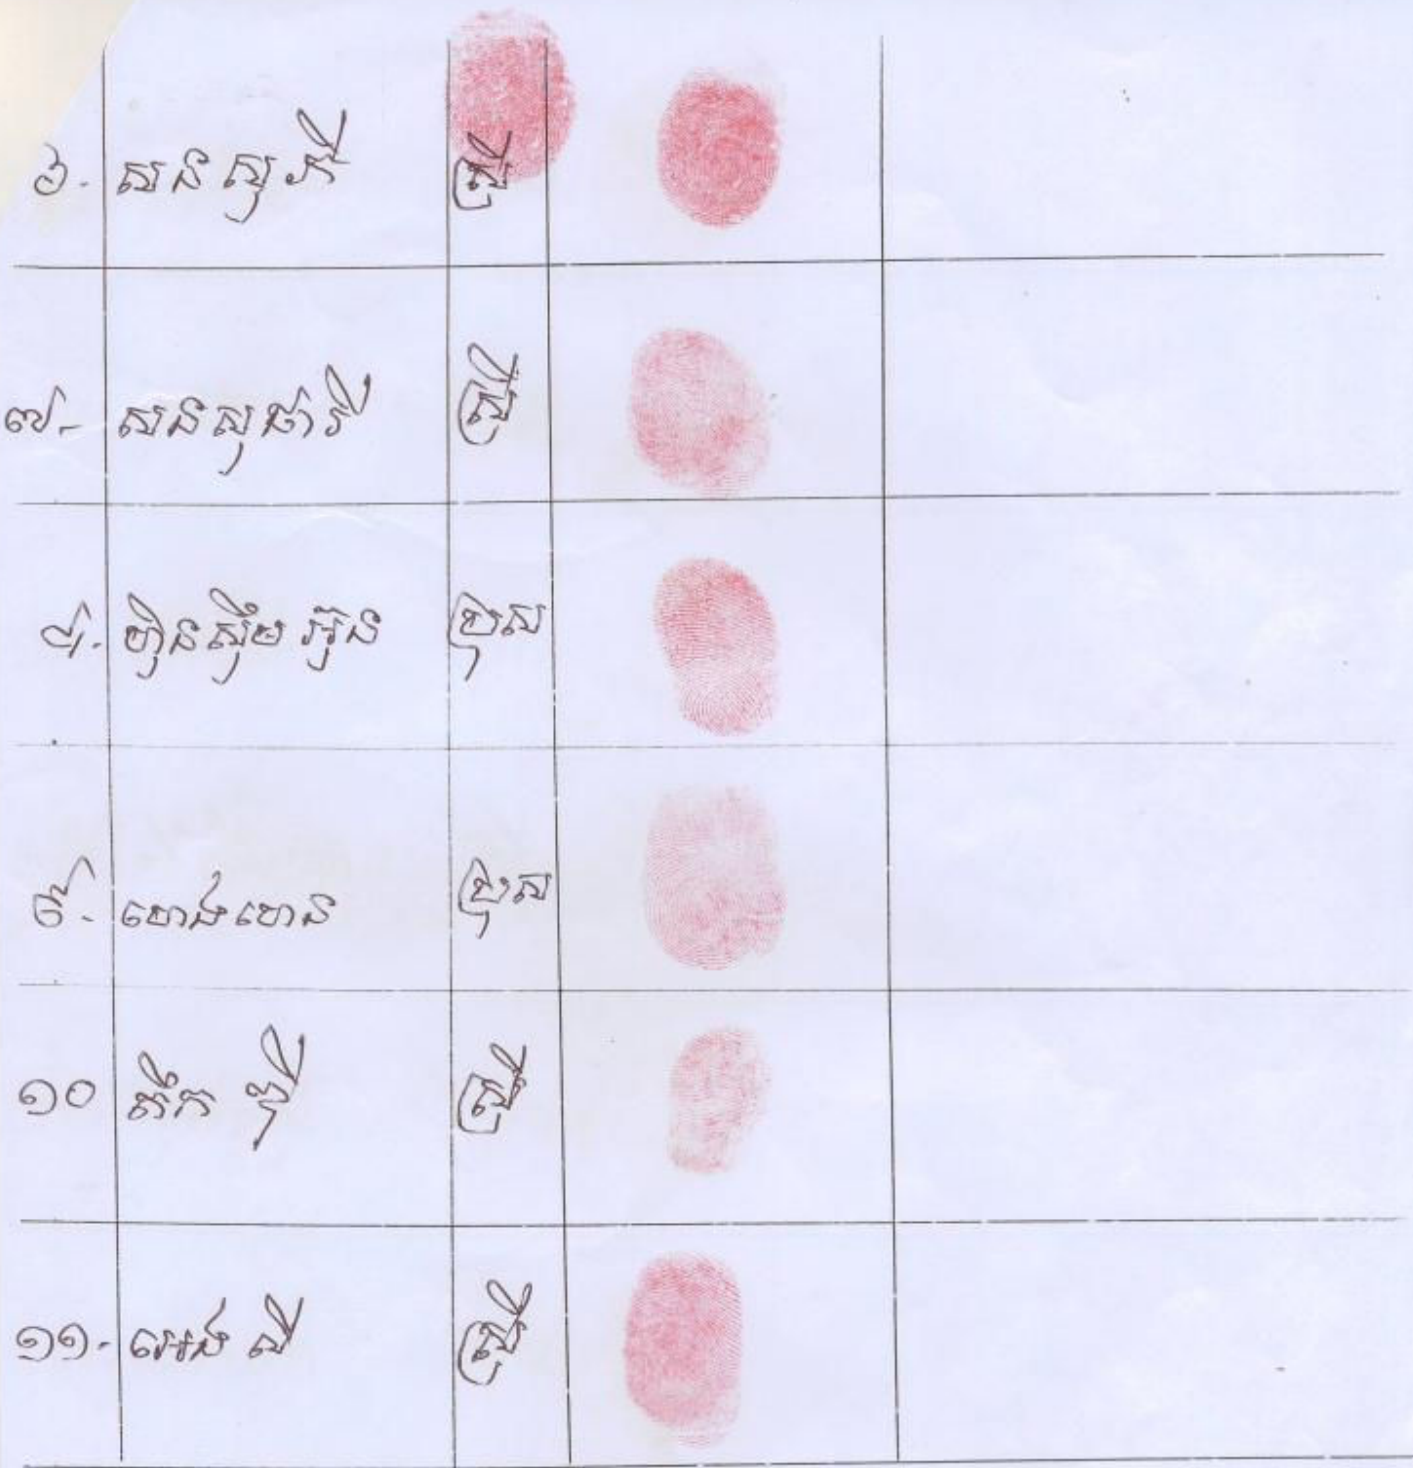 ៦. សន សុភី ស្រី
៧- សន សុផារី ស្រី
៨. ហ៊ិន ស៊ឹម អ៊ួន ប្រុស
៩- ហេង ហេន ប្រុស
១០ ស្រី
១១- អេង លី ស្រី